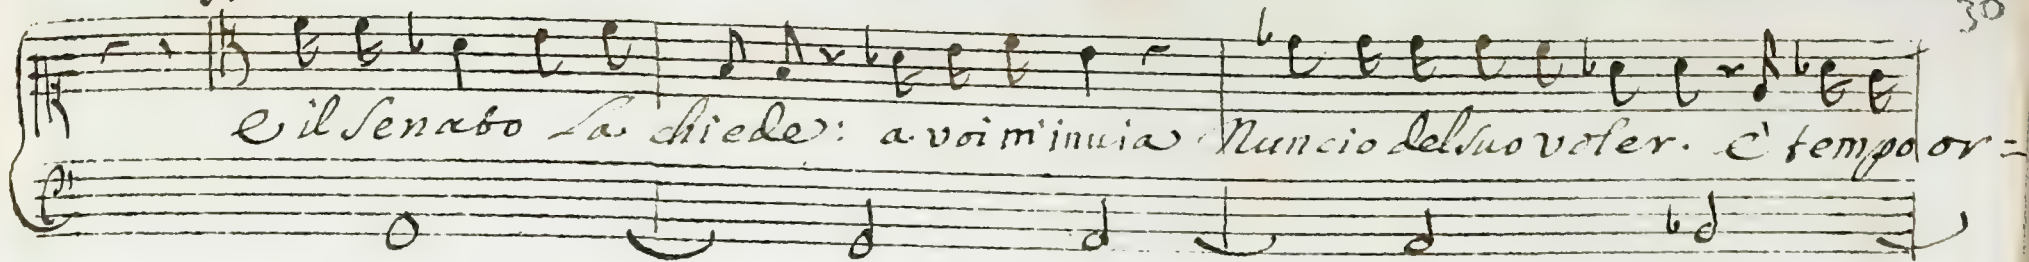 30
e il Senato la chiede: a voi m'inuia Nuncio del suo voler. è tempo or=